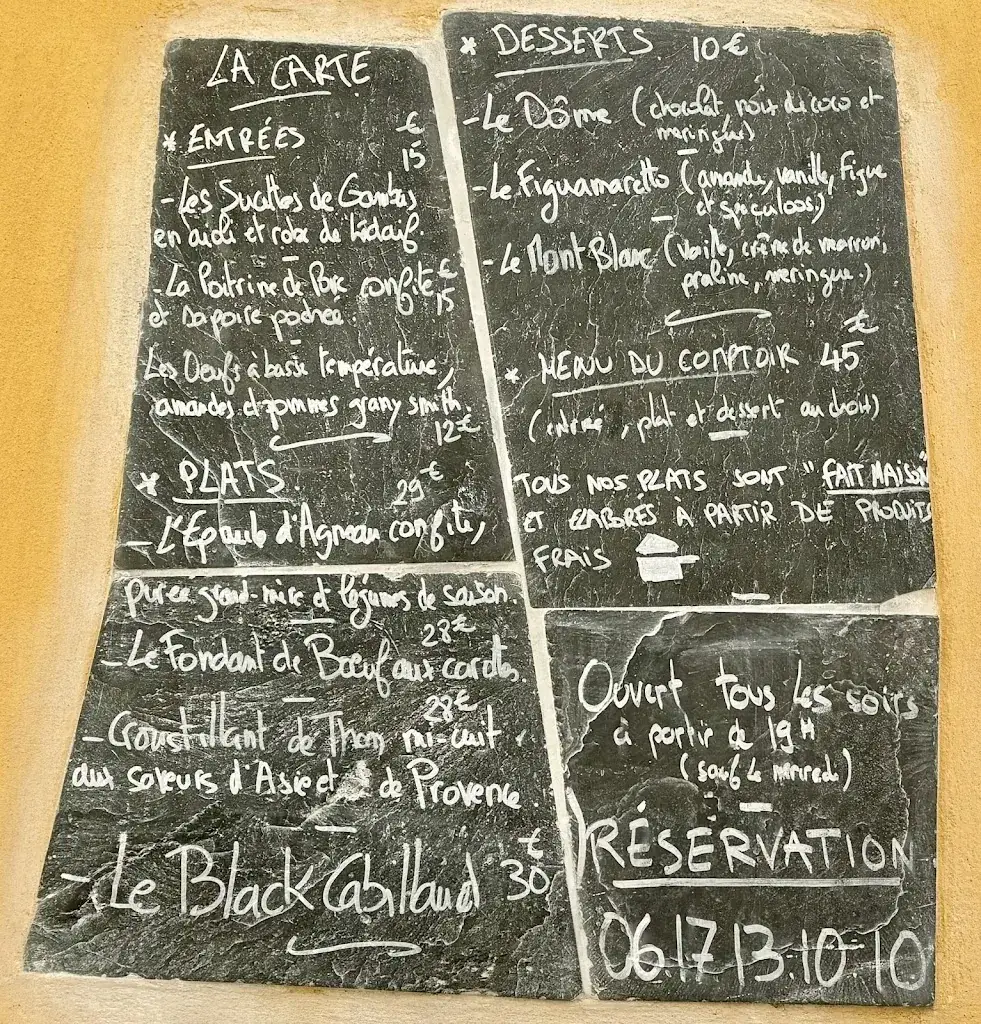 LA CARTE
* ENTRÉES €
15
- Les Sucettes de Gambas
en aïoli et robe de Kadaïf.
- La Poitrine de Porc confite, €
15
et sa poire pochée.
Les Oeufs à basse température,
amandes et pommes grany smith.
12€
* PLATS 29€
- L'Epaule d'Agneau confite,
purée grand-mère et légumes de saison.
28€
- Le Fondant de Bœuf aux carottes.
28€
- Croustillant de Thon mi-cuit
aux saveurs d'Asie et de Provence.
- Le Black Cabillaud 30€
* DESSERTS 10€
- Le Dôme (chocolat, noix de coco et
meringue)
- Le Figuamaretto (amande, vanille, Figue
et spéculoos)
- Le Mont Blanc (vanille, crème de marron,
praline, meringue.)
* MENU DU COMPTOIR 45€
(entrée, plat et dessert au choix)
TOUS NOS PLATS SONT "FAIT MAISON"
ET ELABORÉS À PARTIR DE PRODUITS
FRAIS
Ouvert tous les soirs
à partir de 19H
(sauf le mercredi)
RÉSERVATION
06.17.13.10.10